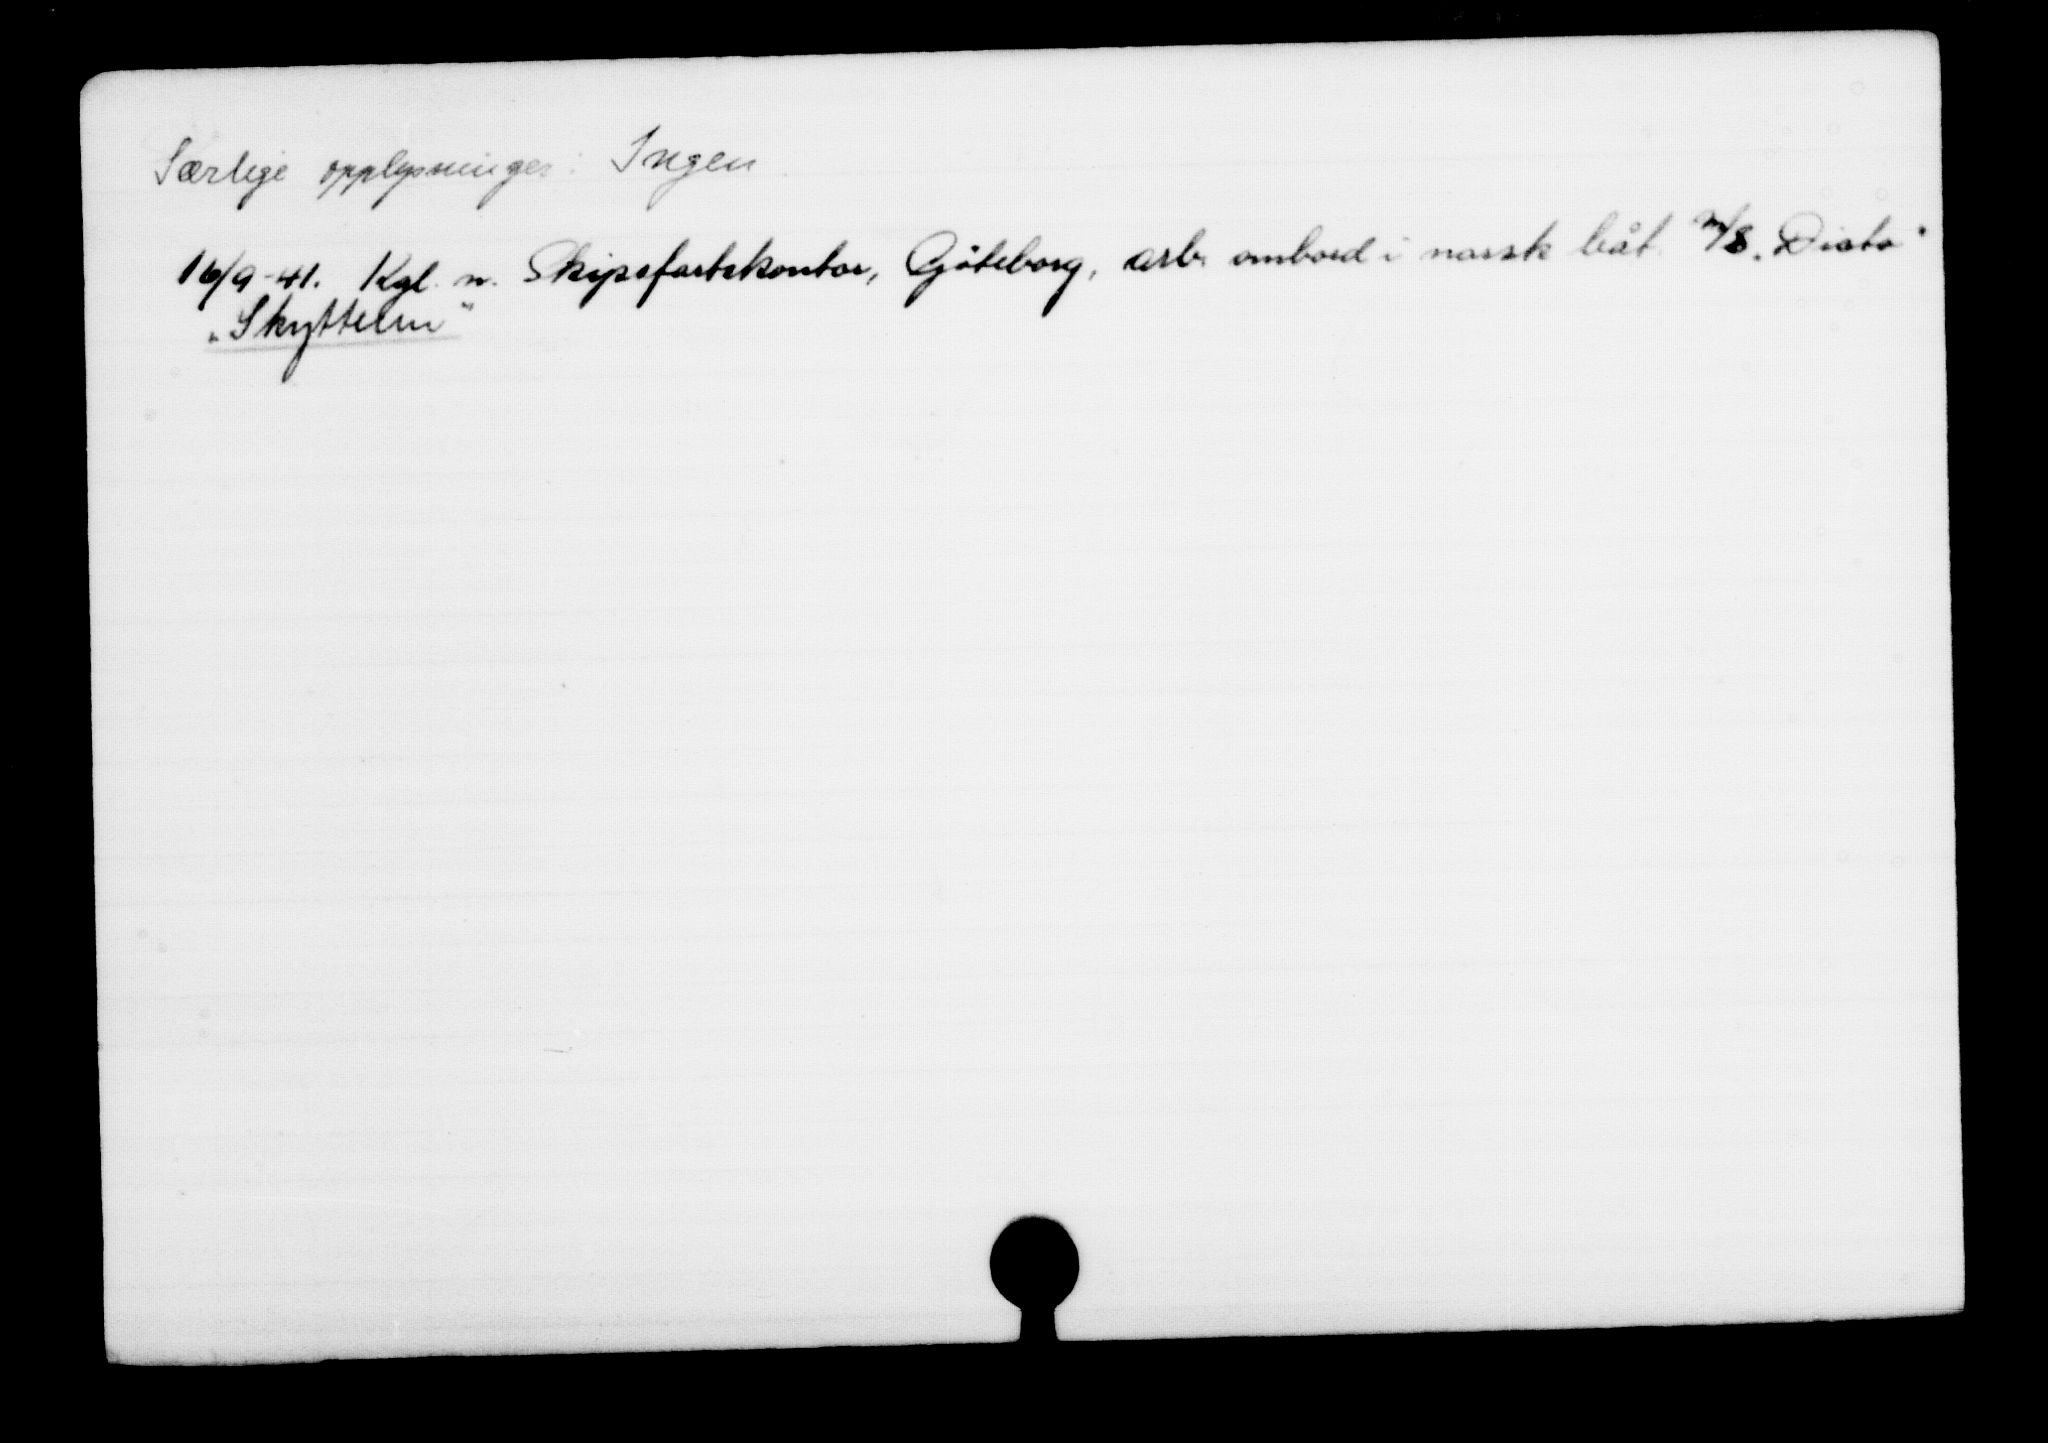 Særlige opplysninger: Ingen
16/9-41. Kgl. n. Skipsfartskontor, Göteborg, arb. ombord i norsk båt. M/S. Dicto"
„Skytteren"